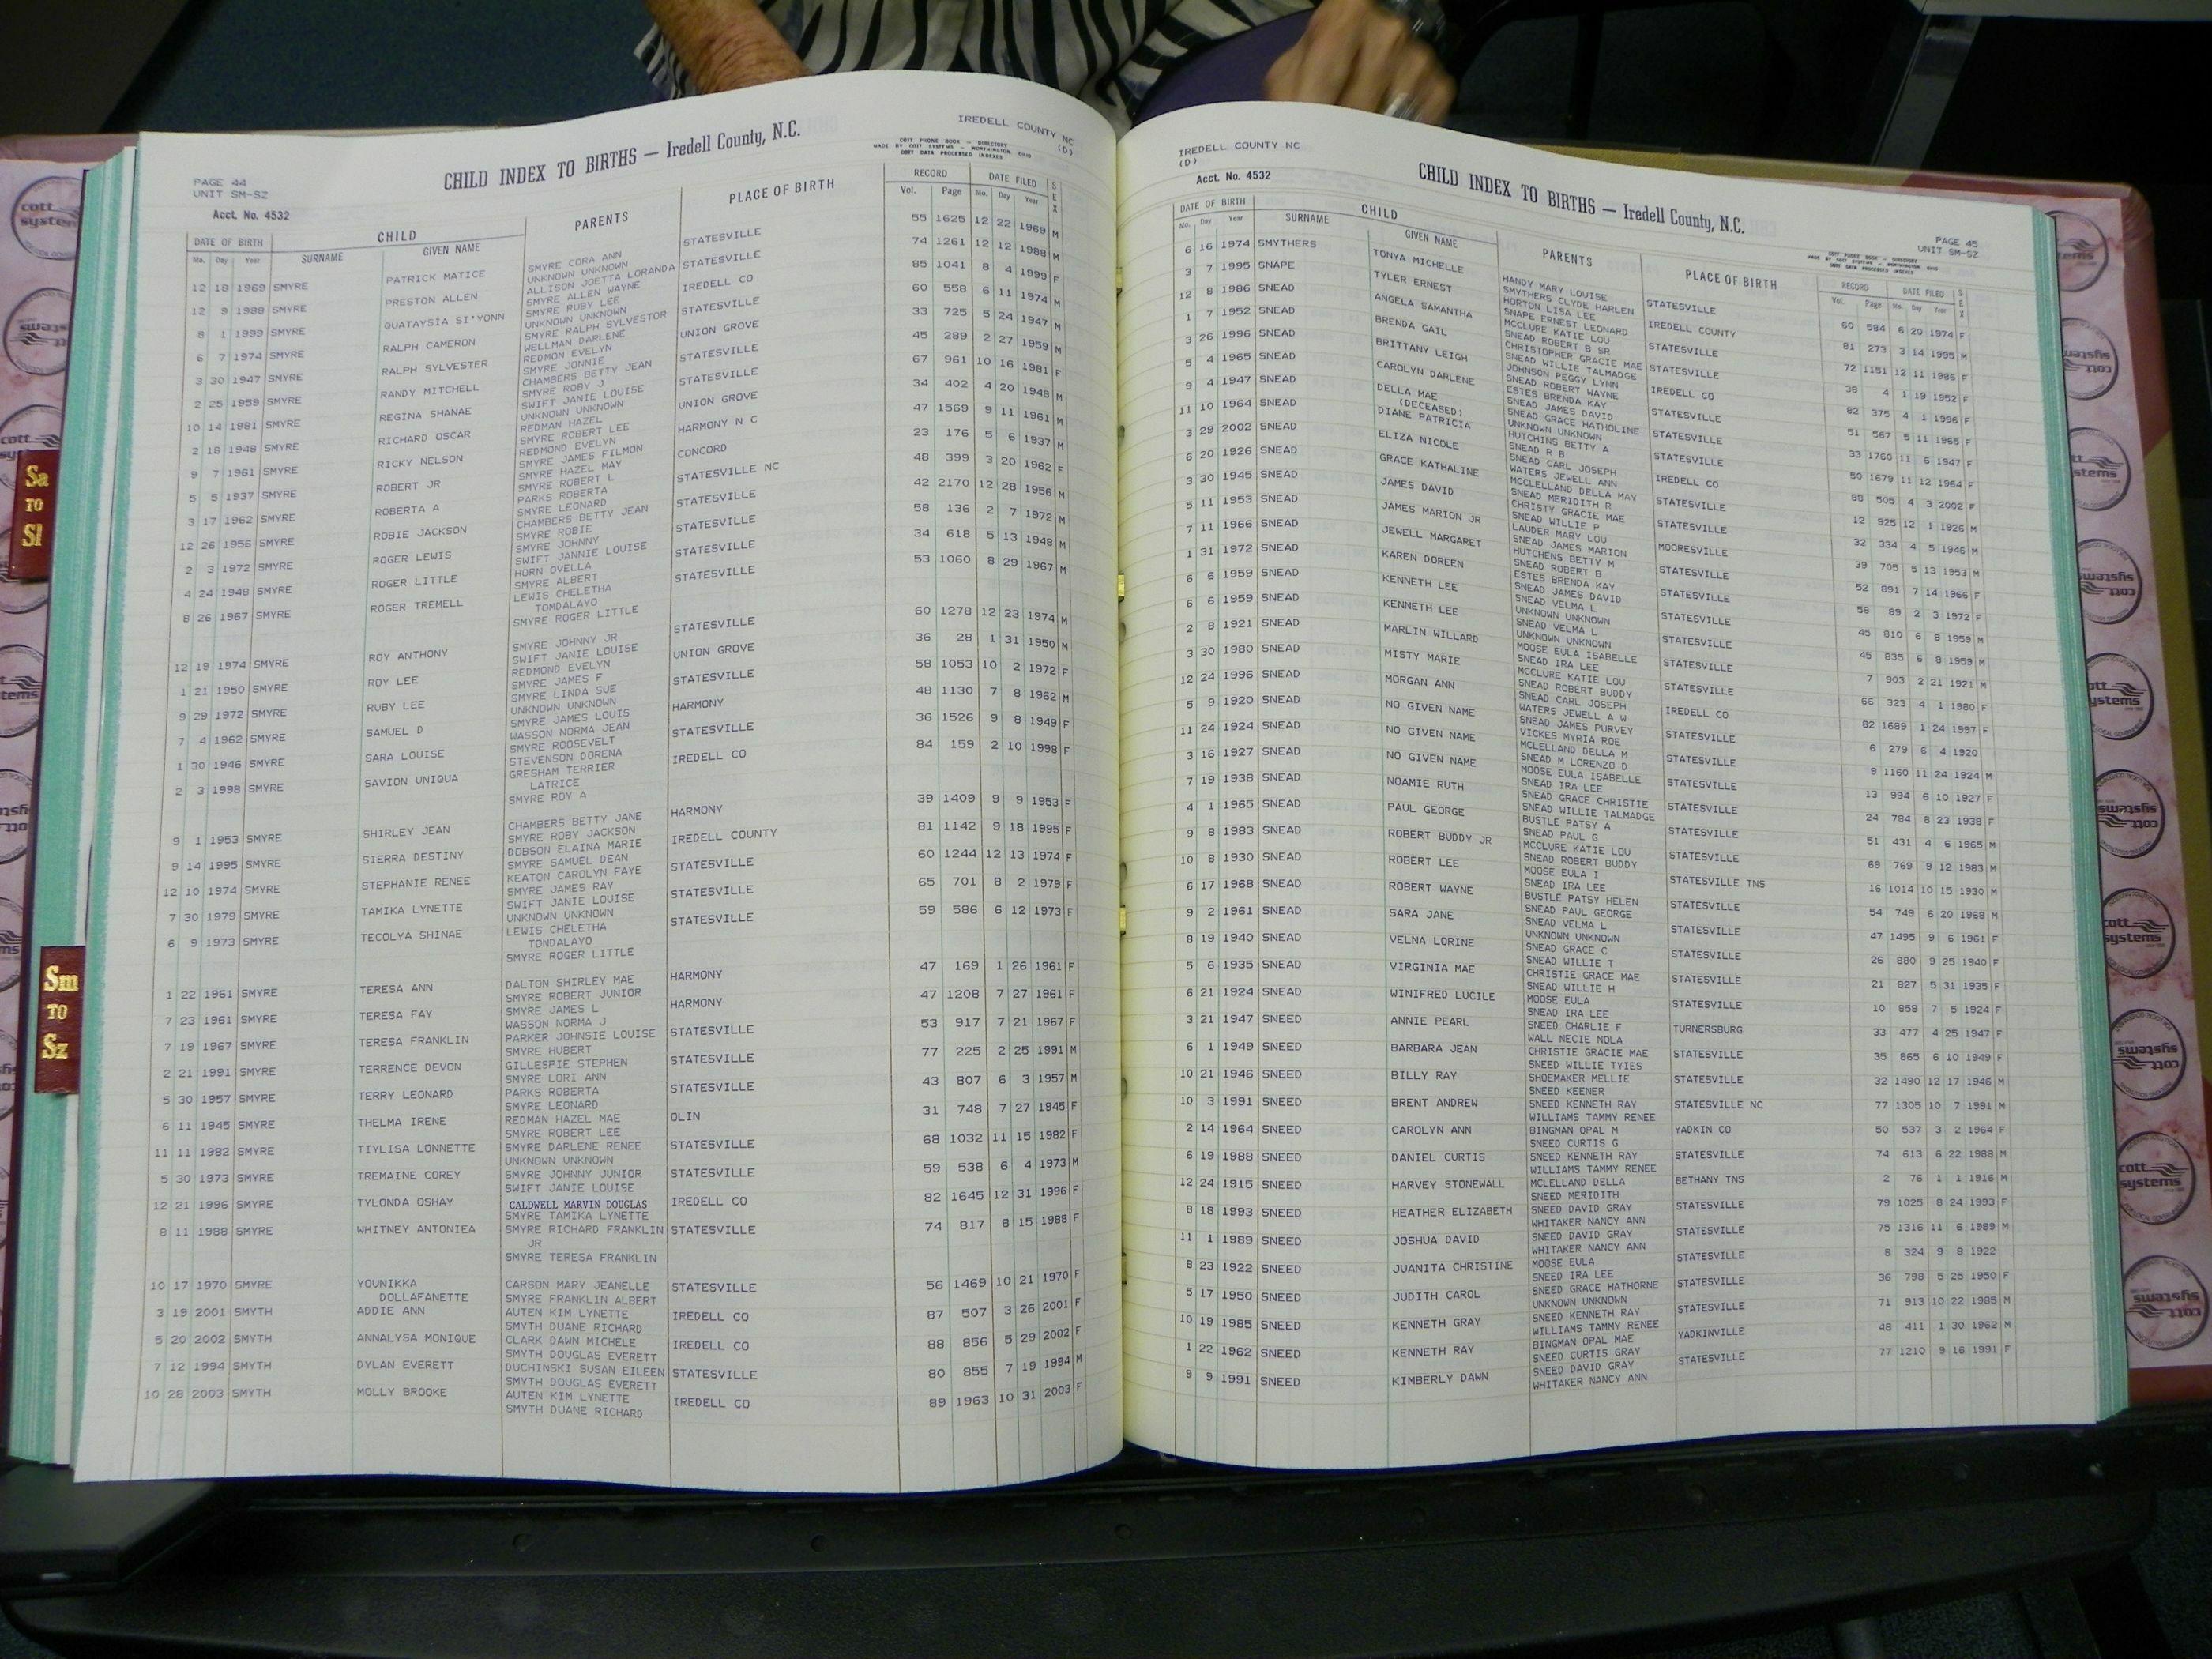 PAGE 44
UNIT SM-SZ
Acct. No. 4532
CHILD INDEX TO BIRTHS — Iredell County, N.C.
COTT PHONE BOOK - DIRECTORY
MADE BY COTT SYSTEMS - WORTHINGTON OHIO
COTT DATA PROCESSED INDEXES
IREDELL COUNTY NC
(D)
DATE OF BIRTH CHILD PARENTS PLACE OF BIRTH RECORD DATE FILED SEX
Mo. Day Year SURNAME GIVEN NAME Vol. Page Mo. Day Year
12 18 1969 SMYRE PATRICK MATICE SMYRE CORA ANN STATESVILLE 55 1625 12 22 1969 M
UNKNOWN UNKNOWN
12 9 1988 SMYRE PRESTON ALLEN ALLISON JOETTA LORANDA STATESVILLE 74 1261 12 12 1988 M
SMYRE ALLEN WAYNE
8 1 1999 SMYRE QUATAYSIA SI'YONN SMYRE RUBY LEE IREDELL CO 85 1041 8 4 1999 F
UNKNOWN UNKNOWN
6 7 1974 SMYRE RALPH CAMERON SMYRE RALPH SYLVESTOR STATESVILLE 60 558 6 11 1974 M
WELLMAN DARLENE
3 30 1947 SMYRE RALPH SYLVESTER REDMON EVELYN UNION GROVE 33 725 5 24 1947 M
SMYRE JONNIE
2 25 1959 SMYRE RANDY MITCHELL CHAMBERS BETTY JEAN STATESVILLE 45 289 2 27 1959 M
SMYRE ROBY J
10 14 1981 SMYRE REGINA SHANAE SWIFT JANIE LOUISE STATESVILLE 67 961 10 16 1981 F
UNKNOWN UNKNOWN
2 18 1948 SMYRE RICHARD OSCAR REDMAN HAZEL UNION GROVE 34 402 4 20 1948 M
SMYRE ROBERT LEE
9 7 1961 SMYRE RICKY NELSON REDMOND EVELYN HARMONY N C 47 1569 9 11 1961 M
SMYRE JAMES FILMON
5 5 1937 SMYRE ROBERT JR SMYRE HAZEL MAY CONCORD 23 176 5 6 1937 M
SMYRE ROBERT L
3 17 1962 SMYRE ROBERTA A PARKS ROBERTA STATESVILLE NC 48 399 3 20 1962 F
SMYRE LEONARD
12 26 1956 SMYRE ROBIE JACKSON CHAMBERS BETTY JEAN STATESVILLE 42 2170 12 28 1956 M
SMYRE ROBIE
2 3 1972 SMYRE ROGER LEWIS SMYRE JOHNNY STATESVILLE 58 136 2 7 1972 M
SWIFT JANNIE LOUISE
4 24 1948 SMYRE ROGER LITTLE HORN OVELLA STATESVILLE 34 618 5 13 1948 M
SMYRE ALBERT
8 26 1967 SMYRE ROGER TREMELL LEWIS CHELETHA STATESVILLE 53 1060 8 29 1967 M
TOMDALAYO
SMYRE ROGER LITTLE
12 19 1974 SMYRE ROY ANTHONY SMYRE JOHNNY JR STATESVILLE 60 1278 12 23 1974 M
SWIFT JANIE LOUISE
1 21 1950 SMYRE ROY LEE REDMOND EVELYN UNION GROVE 36 28 1 31 1950 M
SMYRE JAMES F
9 29 1972 SMYRE RUBY LEE SMYRE LINDA SUE STATESVILLE 58 1053 10 2 1972 F
UNKNOWN UNKNOWN
7 4 1962 SMYRE SAMUEL D SMYRE JAMES LOUIS HARMONY 48 1130 7 8 1962 M
WASSON NORMA JEAN
1 30 1946 SMYRE SARA LOUISE SMYRE ROOSEVELT STATESVILLE 36 1526 9 8 1949 F
STEVENSON DORENA
2 3 1998 SMYRE SAVION UNIQUA GRESHAM TERRIER IREDELL CO 84 159 2 10 1998 F
LATRICE
SMYRE ROY A
9 1 1953 SMYRE SHIRLEY JEAN CHAMBERS BETTY JANE HARMONY 39 1409 9 9 1953 F
SMYRE ROBY JACKSON
9 14 1995 SMYRE SIERRA DESTINY DOBSON ELAINA MARIE IREDELL COUNTY 81 1142 9 18 1995 F
SMYRE SAMUEL DEAN
12 10 1974 SMYRE STEPHANIE RENEE KEATON CAROLYN FAYE STATESVILLE 60 1244 12 13 1974 F
SMYRE JAMES RAY
7 30 1979 SMYRE TAMIKA LYNETTE SWIFT JANIE LOUISE STATESVILLE 65 701 8 2 1979 F
UNKNOWN UNKNOWN
6 9 1973 SMYRE TECOLYA SHINAE LEWIS CHELETHA STATESVILLE 59 586 6 12 1973 F
TONDALAYO
SMYRE ROGER LITTLE
1 22 1961 SMYRE TERESA ANN DALTON SHIRLEY MAE HARMONY 47 169 1 26 1961 F
SMYRE ROBERT JUNIOR
7 23 1961 SMYRE TERESA FAY SMYRE JAMES L HARMONY 47 1208 7 27 1961 F
WASSON NORMA J
7 19 1967 SMYRE TERESA FRANKLIN PARKER JOHNSIE LOUISE STATESVILLE 53 917 7 21 1967 F
SMYRE HUBERT
2 21 1991 SMYRE TERRENCE DEVON GILLESPIE STEPHEN STATESVILLE 77 225 2 25 1991 M
SMYRE LORI ANN
5 30 1957 SMYRE TERRY LEONARD PARKS ROBERTA STATESVILLE 43 807 6 3 1957 M
SMYRE LEONARD
6 11 1945 SMYRE THELMA IRENE REDMAN HAZEL MAE OLIN 31 748 7 27 1945 F
SMYRE ROBERT LEE
11 11 1982 SMYRE TIYLISA LONNETTE SMYRE DARLENE RENEE STATESVILLE 68 1032 11 15 1982 F
UNKNOWN UNKNOWN
5 30 1973 SMYRE TREMAINE COREY SMYRE JOHNNY JUNIOR STATESVILLE 59 538 6 4 1973 M
SWIFT JANIE LOUISE
12 21 1996 SMYRE TYLONDA OSHAY CALDWELL MARVIN DOUGLAS IREDELL CO 82 1645 12 31 1996 F
SMYRE TAMIKA LYNETTE
8 11 1988 SMYRE WHITNEY ANTONIEA SMYRE RICHARD FRANKLIN STATESVILLE 74 817 8 15 1988 F
JR
SMYRE TERESA FRANKLIN
10 17 1970 SMYRE YOUNIKKA CARSON MARY JEANELLE STATESVILLE 56 1469 10 21 1970 F
DOLLAFANETTE SMYRE FRANKLIN ALBERT
3 19 2001 SMYTH ADDIE ANN AUTEN KIM LYNETTE IREDELL CO 87 507 3 26 2001 F
SMYTH DUANE RICHARD
5 20 2002 SMYTH ANNALYSA MONIQUE CLARK DAWN MICHELE IREDELL CO 88 856 5 29 2002 F
SMYTH DOUGLAS EVERETT
7 12 1994 SMYTH DYLAN EVERETT DUCHINSKI SUSAN EILEEN STATESVILLE 80 855 7 19 1994 M
SMYTH DOUGLAS EVERETT
10 28 2003 SMYTH MOLLY BROOKE AUTEN KIM LYNETTE IREDELL CO 89 1963 10 31 2003 F
SMYTH DUANE RICHARD
IREDELL COUNTY NC
(D)
Acct. No. 4532
CHILD INDEX TO BIRTHS — Iredell County, N.C.
PAGE 45
UNIT SM-SZ
COTT PHONE BOOK - DIRECTORY
MADE BY COTT SYSTEMS - WORTHINGTON OHIO
COTT DATA PROCESSED INDEXES
DATE OF BIRTH CHILD PARENTS PLACE OF BIRTH RECORD DATE FILED SEX
Mo. Day Year SURNAME GIVEN NAME Vol. Page Mo. Day Year
6 16 1974 SMYTHERS TONYA MICHELLE HANDY MARY LOUISE STATESVILLE 60 584 6 20 1974 F
SMYTHERS CLYDE HARLEN
3 7 1995 SNAPE TYLER ERNEST HORTON LISA LEE IREDELL COUNTY 81 273 3 14 1995 M
SNAPE ERNEST LEONARD
12 8 1986 SNEAD ANGELA SAMANTHA MCCLURE KATIE LOU STATESVILLE 72 1151 12 11 1986 F
SNEAD ROBERT B SR
1 7 1952 SNEAD BRENDA GAIL CHRISTOPHER GRACIE MAE STATESVILLE 38 4 1 19 1952 F
SNEAD WILLIE TALMADGE
3 26 1996 SNEAD BRITTANY LEIGH JOHNSON PEGGY LYNN IREDELL CO 82 375 4 1 1996 F
SNEAD ROBERT WAYNE
5 4 1965 SNEAD CAROLYN DARLENE ESTES BRENDA KAY STATESVILLE 51 567 5 11 1965 F
SNEAD JAMES DAVID
9 4 1947 SNEAD DELLA MAE SNEAD GRACE HATHOLINE STATESVILLE 33 1760 11 6 1947 F
(DECEASED) UNKNOWN UNKNOWN
11 10 1964 SNEAD DIANE PATRICIA HUTCHINS BETTY A STATESVILLE 50 1679 11 12 1964 F
SNEAD R B
3 29 2002 SNEAD ELIZA NICOLE SNEAD CARL JOSEPH IREDELL CO 88 505 4 3 2002 F
WATERS JEWELL ANN
6 20 1926 SNEAD GRACE KATHALINE MCCLELLAND DELLA MAY STATESVILLE 12 925 12 1 1926 M
SNEAD MERIDITH R
3 30 1945 SNEAD JAMES DAVID CHRISTY GRACIE MAE STATESVILLE 32 334 4 5 1946 M
SNEAD WILLIE P
5 11 1953 SNEAD JAMES MARION JR LAUDER MARY LOU MOORESVILLE 39 705 5 13 1953 M
SNEAD JAMES MARION
7 11 1966 SNEAD JEWELL MARGARET HUTCHENS BETTY M STATESVILLE 52 891 7 14 1966 F
SNEAD ROBERT B
1 31 1972 SNEAD KAREN DOREEN ESTES BRENDA KAY STATESVILLE 58 89 2 3 1972 F
SNEAD JAMES DAVID
6 6 1959 SNEAD KENNETH LEE SNEAD VELMA L STATESVILLE 45 810 6 8 1959 M
UNKNOWN UNKNOWN
6 6 1959 SNEAD KENNETH LEE SNEAD VELMA L STATESVILLE 45 835 6 8 1959 M
UNKNOWN UNKNOWN
2 8 1921 SNEAD MARLIN WILLARD MOOSE EULA ISABELLE STATESVILLE 7 903 2 21 1921 M
SNEAD IRA LEE
3 30 1980 SNEAD MISTY MARIE MCCLURE KATIE LOU STATESVILLE 66 323 4 1 1980 F
SNEAD ROBERT BUDDY
12 24 1996 SNEAD MORGAN ANN SNEAD CARL JOSEPH IREDELL CO 82 1689 1 24 1997 F
WATERS JEWELL A W
5 9 1920 SNEAD NO GIVEN NAME SNEAD JAMES PURVEY STATESVILLE 6 279 6 4 1920
VICKES MYRIA ROE
11 24 1924 SNEAD NO GIVEN NAME MCLELLAND DELLA M STATESVILLE 9 1160 11 24 1924 M
SNEAD M LORENZO D
3 16 1927 SNEAD NO GIVEN NAME MOOSE EULA ISABELLE STATESVILLE 13 994 6 10 1927 F
SNEAD IRA LEE
7 19 1938 SNEAD NOAMIE RUTH SNEAD GRACE CHRISTIE STATESVILLE 24 784 8 23 1938 F
SNEAD WILLIE TALMADGE
4 1 1965 SNEAD PAUL GEORGE BUSTLE PATSY A STATESVILLE 51 431 4 6 1965 M
SNEAD PAUL G
9 8 1983 SNEAD ROBERT BUDDY JR MCCLURE KATIE LOU STATESVILLE 69 769 9 12 1983 M
SNEAD ROBERT BUDDY
10 8 1930 SNEAD ROBERT LEE MOOSE EULA I STATESVILLE TNS 16 1014 10 15 1930 M
SNEAD IRA LEE
6 17 1968 SNEAD ROBERT WAYNE BUSTLE PATSY HELEN STATESVILLE 54 749 6 20 1968 M
SNEAD PAUL GEORGE
9 2 1961 SNEAD SARA JANE SNEAD VELMA L STATESVILLE 47 1495 9 6 1961 F
UNKNOWN UNKNOWN
8 19 1940 SNEAD VELNA LORINE SNEAD GRACE C STATESVILLE 26 880 9 25 1940 F
SNEAD WILLIE T
5 6 1935 SNEAD VIRGINIA MAE CHRISTIE GRACE MAE STATESVILLE 21 827 5 31 1935 F
SNEAD WILLIE H
6 21 1924 SNEAD WINIFRED LUCILE MOOSE EULA STATESVILLE 10 858 7 5 1924 F
SNEAD IRA LEE
3 21 1947 SNEED ANNIE PEARL SNEED CHARLIE F TURNERSBURG 33 477 4 25 1947 F
WALL NECIE NOLA
6 1 1949 SNEED BARBARA JEAN CHRISTIE GRACIE MAE STATESVILLE 35 865 6 10 1949 F
SNEED WILLIE TYIES
10 21 1946 SNEED BILLY RAY SHOEMAKER MELLIE STATESVILLE 32 1490 12 17 1946 M
SNEED KEENER
10 3 1991 SNEED BRENT ANDREW SNEED KENNETH RAY STATESVILLE NC 77 1305 10 7 1991 M
WILLIAMS TAMMY RENEE
2 14 1964 SNEED CAROLYN ANN BINGMAN OPAL M YADKIN CO 50 537 3 2 1964 F
SNEED CURTIS G
6 19 1988 SNEED DANIEL CURTIS SNEED KENNETH RAY STATESVILLE 74 613 6 22 1988 M
WILLIAMS TAMMY RENEE
12 24 1915 SNEED HARVEY STONEWALL MCLELLAND DELLA BETHANY TNS 2 76 1 1 1916 M
SNEED MERIDITH
8 18 1993 SNEED HEATHER ELIZABETH SNEED DAVID GRAY STATESVILLE 79 1025 8 24 1993 F
WHITAKER NANCY ANN
11 1 1989 SNEED JOSHUA DAVID SNEED DAVID GRAY STATESVILLE 75 1316 11 6 1989 M
WHITAKER NANCY ANN
8 23 1922 SNEED JUANITA CHRISTINE MOOSE EULA STATESVILLE 8 324 9 8 1922
SNEED IRA LEE
5 17 1950 SNEED JUDITH CAROL SNEED GRACE HATHORNE STATESVILLE 36 798 5 25 1950 F
UNKNOWN UNKNOWN
10 19 1985 SNEED KENNETH GRAY SNEED KENNETH RAY STATESVILLE 71 913 10 22 1985 M
WILLIAMS TAMMY RENEE
1 22 1962 SNEED KENNETH RAY BINGMAN OPAL MAE YADKINVILLE 48 411 1 30 1962 M
SNEED CURTIS GRAY
9 9 1991 SNEED KIMBERLY DAWN SNEED DAVID GRAY STATESVILLE 77 1210 9 16 1991 F
WHITAKER NANCY ANN
Sa
TO
Sl
Sm
TO
Sz
cott systems